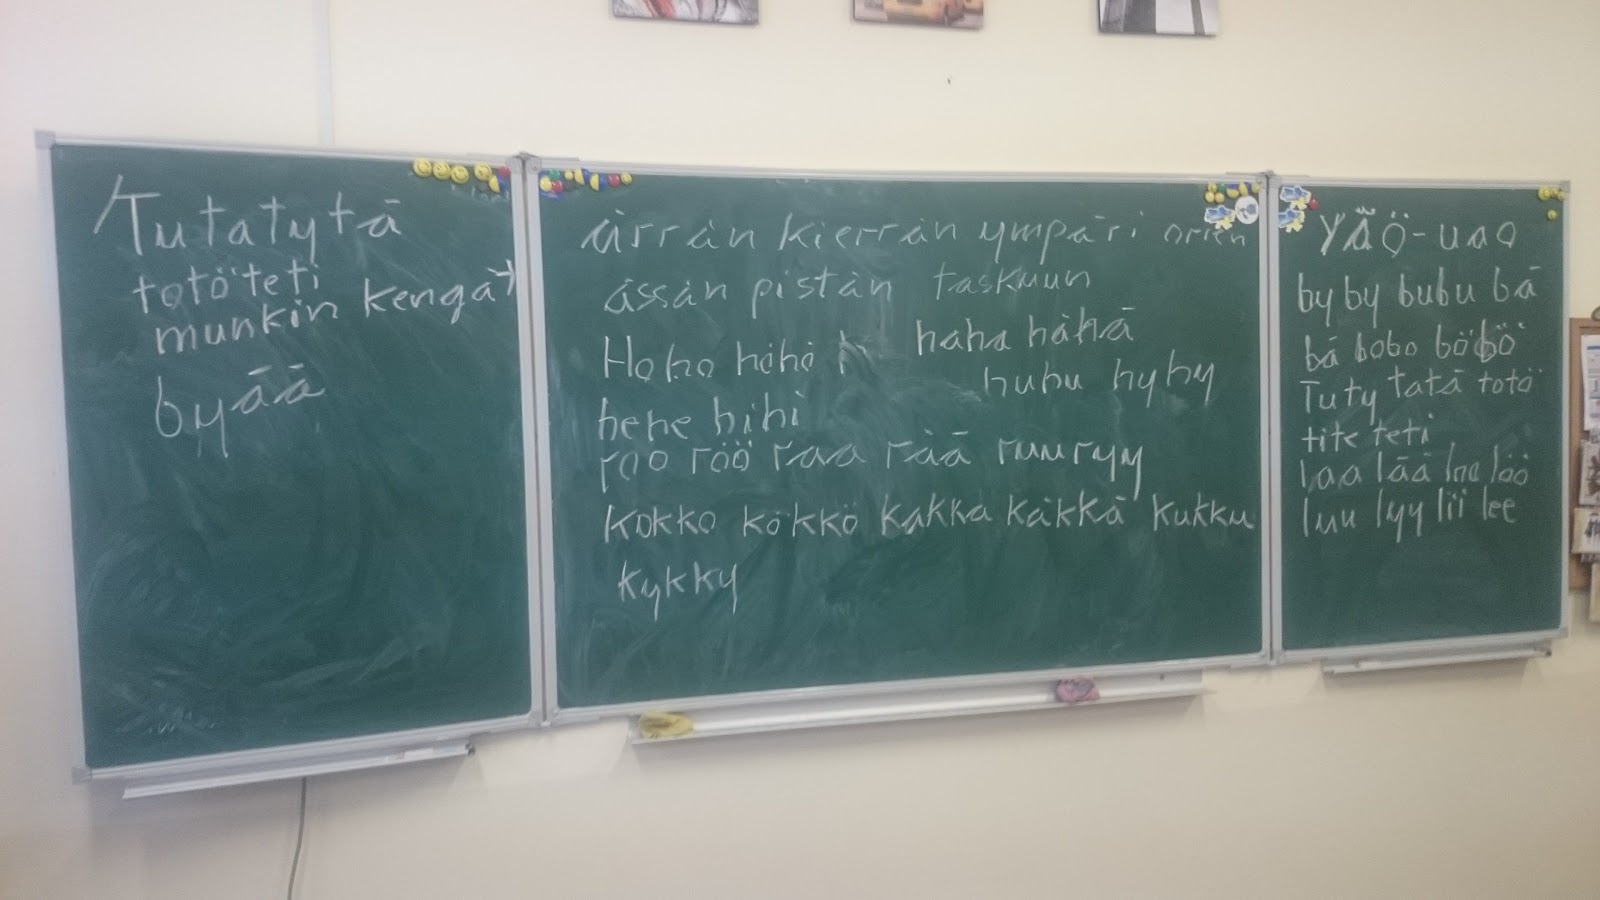 Tutatytä
totöteti
munkin kengät
byää
ärrän kierrän ympäri orren
ässän pistän taskuun
Hoho höhö h haha hähä
huhu hyhy
hehe hihi
roo röö raa rää ruu ryy
kokko kökkö kakka käkkä kukku
kykky
YÄÖ-uao
by by bubu bä
bä bobo böbö
Tuty tatä totö
tite teti
laa lää loo löö
luu lyy lii lee